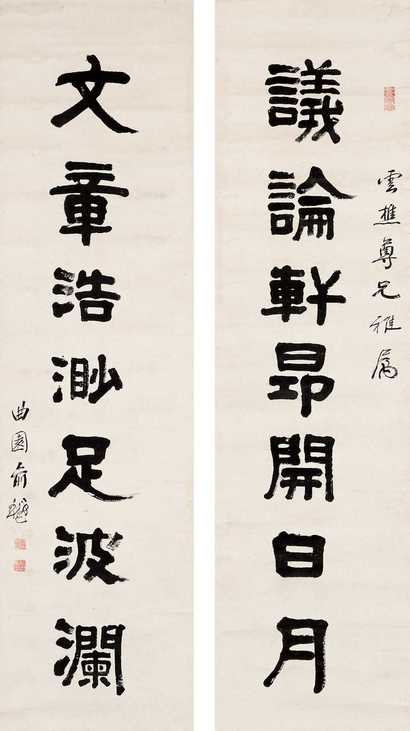 雲樵尊兄雅屬
議論軒昂開日月
文章浩渺足波瀾
曲園俞樾